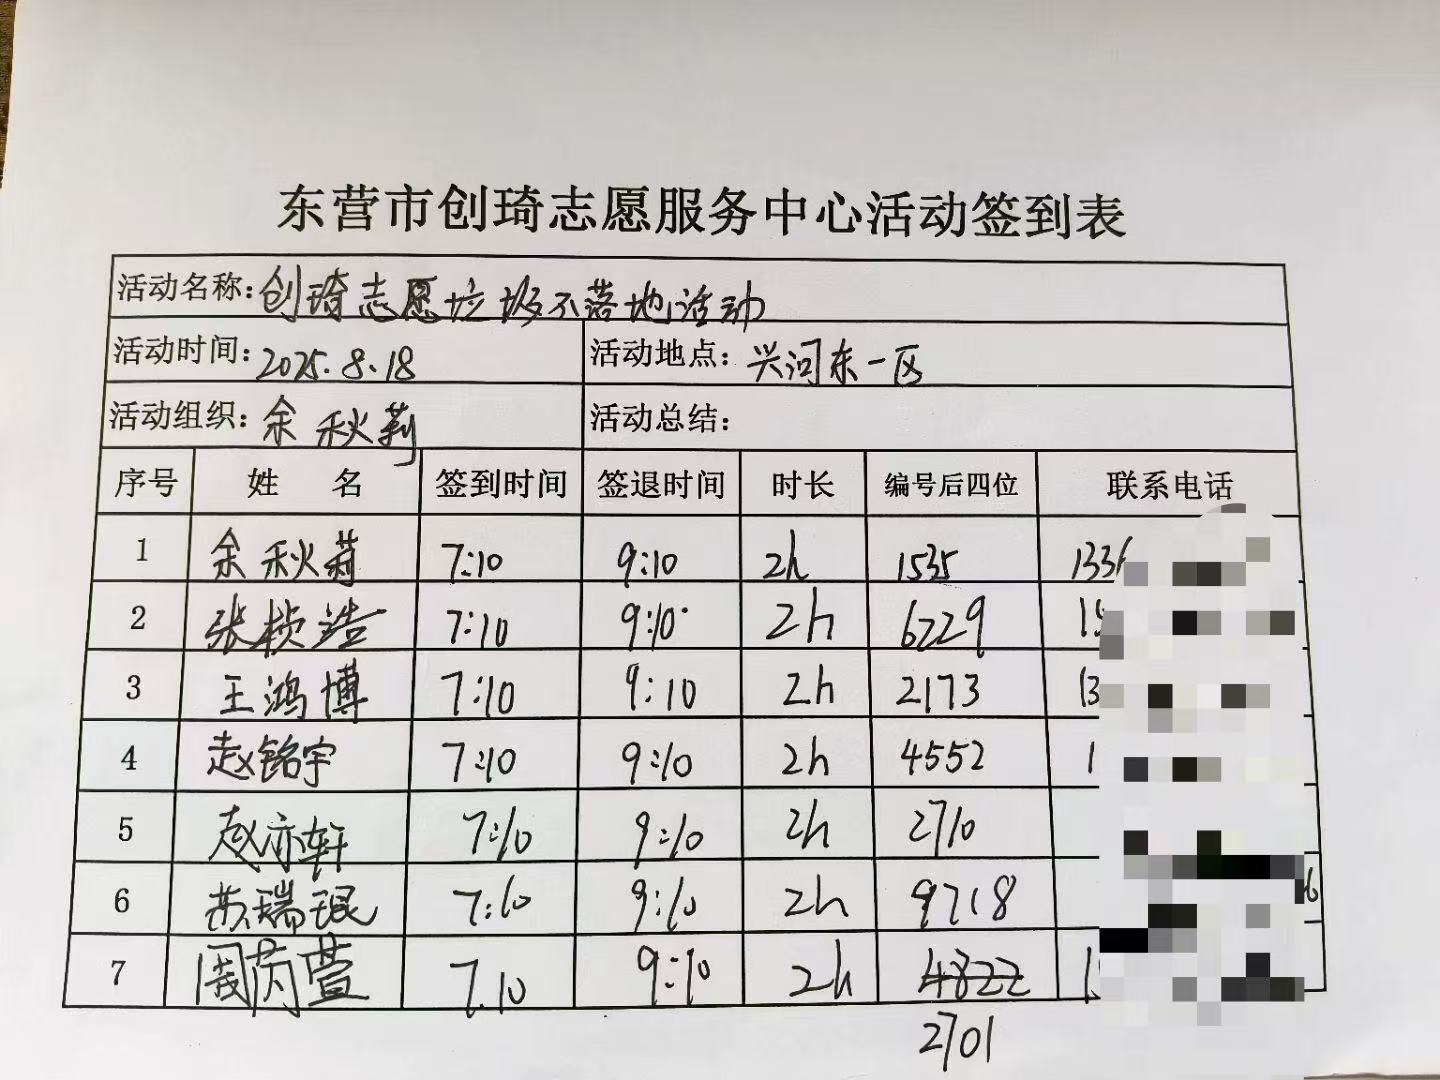 东营市创琦志愿服务中心活动签到表
活动名称:创琦志愿垃圾不落地活动
活动时间:2025.8.18 活动地点:兴河东一区
活动组织:余秋莉 活动总结:
序号 姓名 签到时间 签退时间 时长 编号后四位 联系电话
1 余秋莉 7:10 9:10 2h 1535 1336
2 张桢浩 7:10 9:10 2h 6229
3 王鸿博 7:10 9:10 2h 2173 13
4 赵铭宇 7:10 9:10 2h 4552 1
5 赵亦轩 7:10 9:10 2h 2710
6 瑞琨 7:10 9:10 2h 9718
7 周芮萱 7.10 9:10 2h 4822
2701